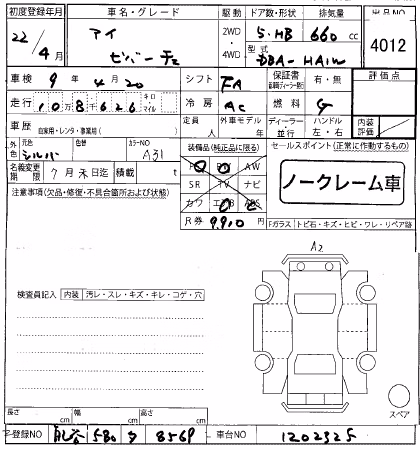 初度登録年月 車名・グレード 駆動 ドア数・形状 排気量 出品NO
22/4月 アイ 2WD・4WD 5.HB 660cc 4012
型式 DBA-HA1W
車検 9年4月20 シフト FA 保証書 有・無 評価点
走行 108626 キロ・マイル 冷房 AC 燃料 G
車歴 自家用・レンタ・事業用( ) 定員 人 外車モデル 年 ディーラー・並行 ハンドル 左・右 内装評価
外色 元色 シルバー 色替 カラーNO A31
装備品(純正品に限る) セールスポイント(正常に作動するもの)
PS PW AW
SR TV ナビ
カワ エアB ABS
ノークレーム車
名義変更期限 7月末日迄 積載 t
R券 9,910円
注意事項(欠品・修復・不具合箇所および状態)
Fガラス トビ石・キズ・ヒビ・ワレ・リペア跡
A2
検査員記入 内装 汚レ・スレ・キズ・キレ・コゲ・穴
スペア
長さ cm 幅 cm 高さ cm
登録NO 580 8569 車台NO 1202325